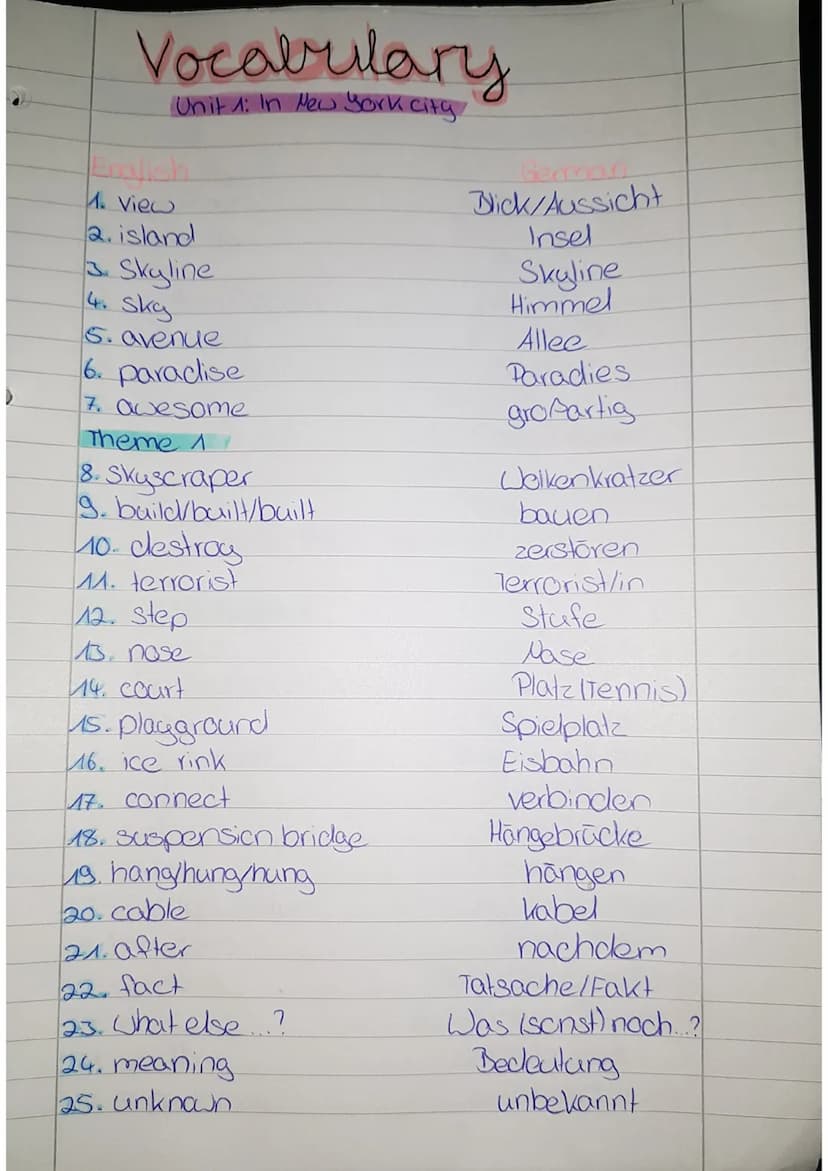 Vocabulary
Unit 1: In New York city
English German
1. view Blick/Aussicht
2. island Insel
3. Skyline Skyline
4. sky Himmel
5. avenue Allee
6. paradise Paradies
7. awesome großartig
Theme 1
8. Skyscraper Wolkenkratzer
9. build/built/built bauen
10. destroy zerstören
11. terrorist Terrorist/in
12. step Stufe
13. nose Nase
14. court Platz (Tennis)
15. playground Spielplatz
16. ice rink Eisbahn
17. connect verbinden
18. suspension bridge Hängebrücke
19. hang/hung/hung hängen
20. cable kabel
21. after nachdem
22. fact Tatsache/Fakt
23. What else...? Was (sonst) noch...?
24. meaning Bedeutung
25. unknown unbekannt